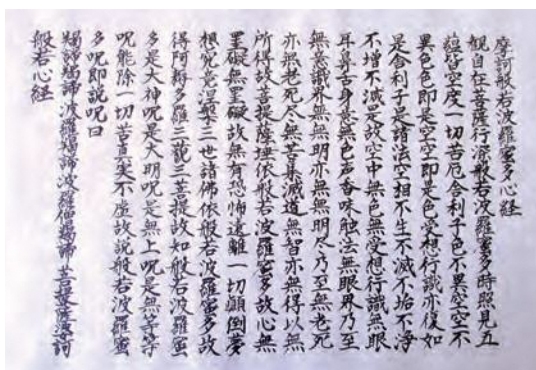 摩訶般若波羅蜜多心経
観自在菩薩行深般若波羅蜜多時照見五
蘊皆空度一切苦厄舎利子色不異空空不
異色色即是空空即是色受想行識亦復如
是舎利子是諸法空相不生不滅不垢不浄
不増不減是故空中無色無受想行識無眼
耳鼻舌身意無色声香味触法無眼界乃至
無意識界無無明亦無無明尽乃至無老死
亦無老死尽無苦集滅道無智亦無得以無
所得故菩提薩埵依般若波羅蜜多故心無
罣礙無罣礙故無有恐怖遠離一切顛倒夢
想究竟涅槃三世諸佛依般若波羅蜜多故
得阿耨多羅三藐三菩提故知般若波羅蜜
多是大神呪是大明呪是無上呪是無等等
呪能除一切苦真実不虚故説般若波羅蜜
多呪即説呪曰
羯諦羯諦波羅羯諦波羅僧羯諦 菩提薩婆訶
般若心経